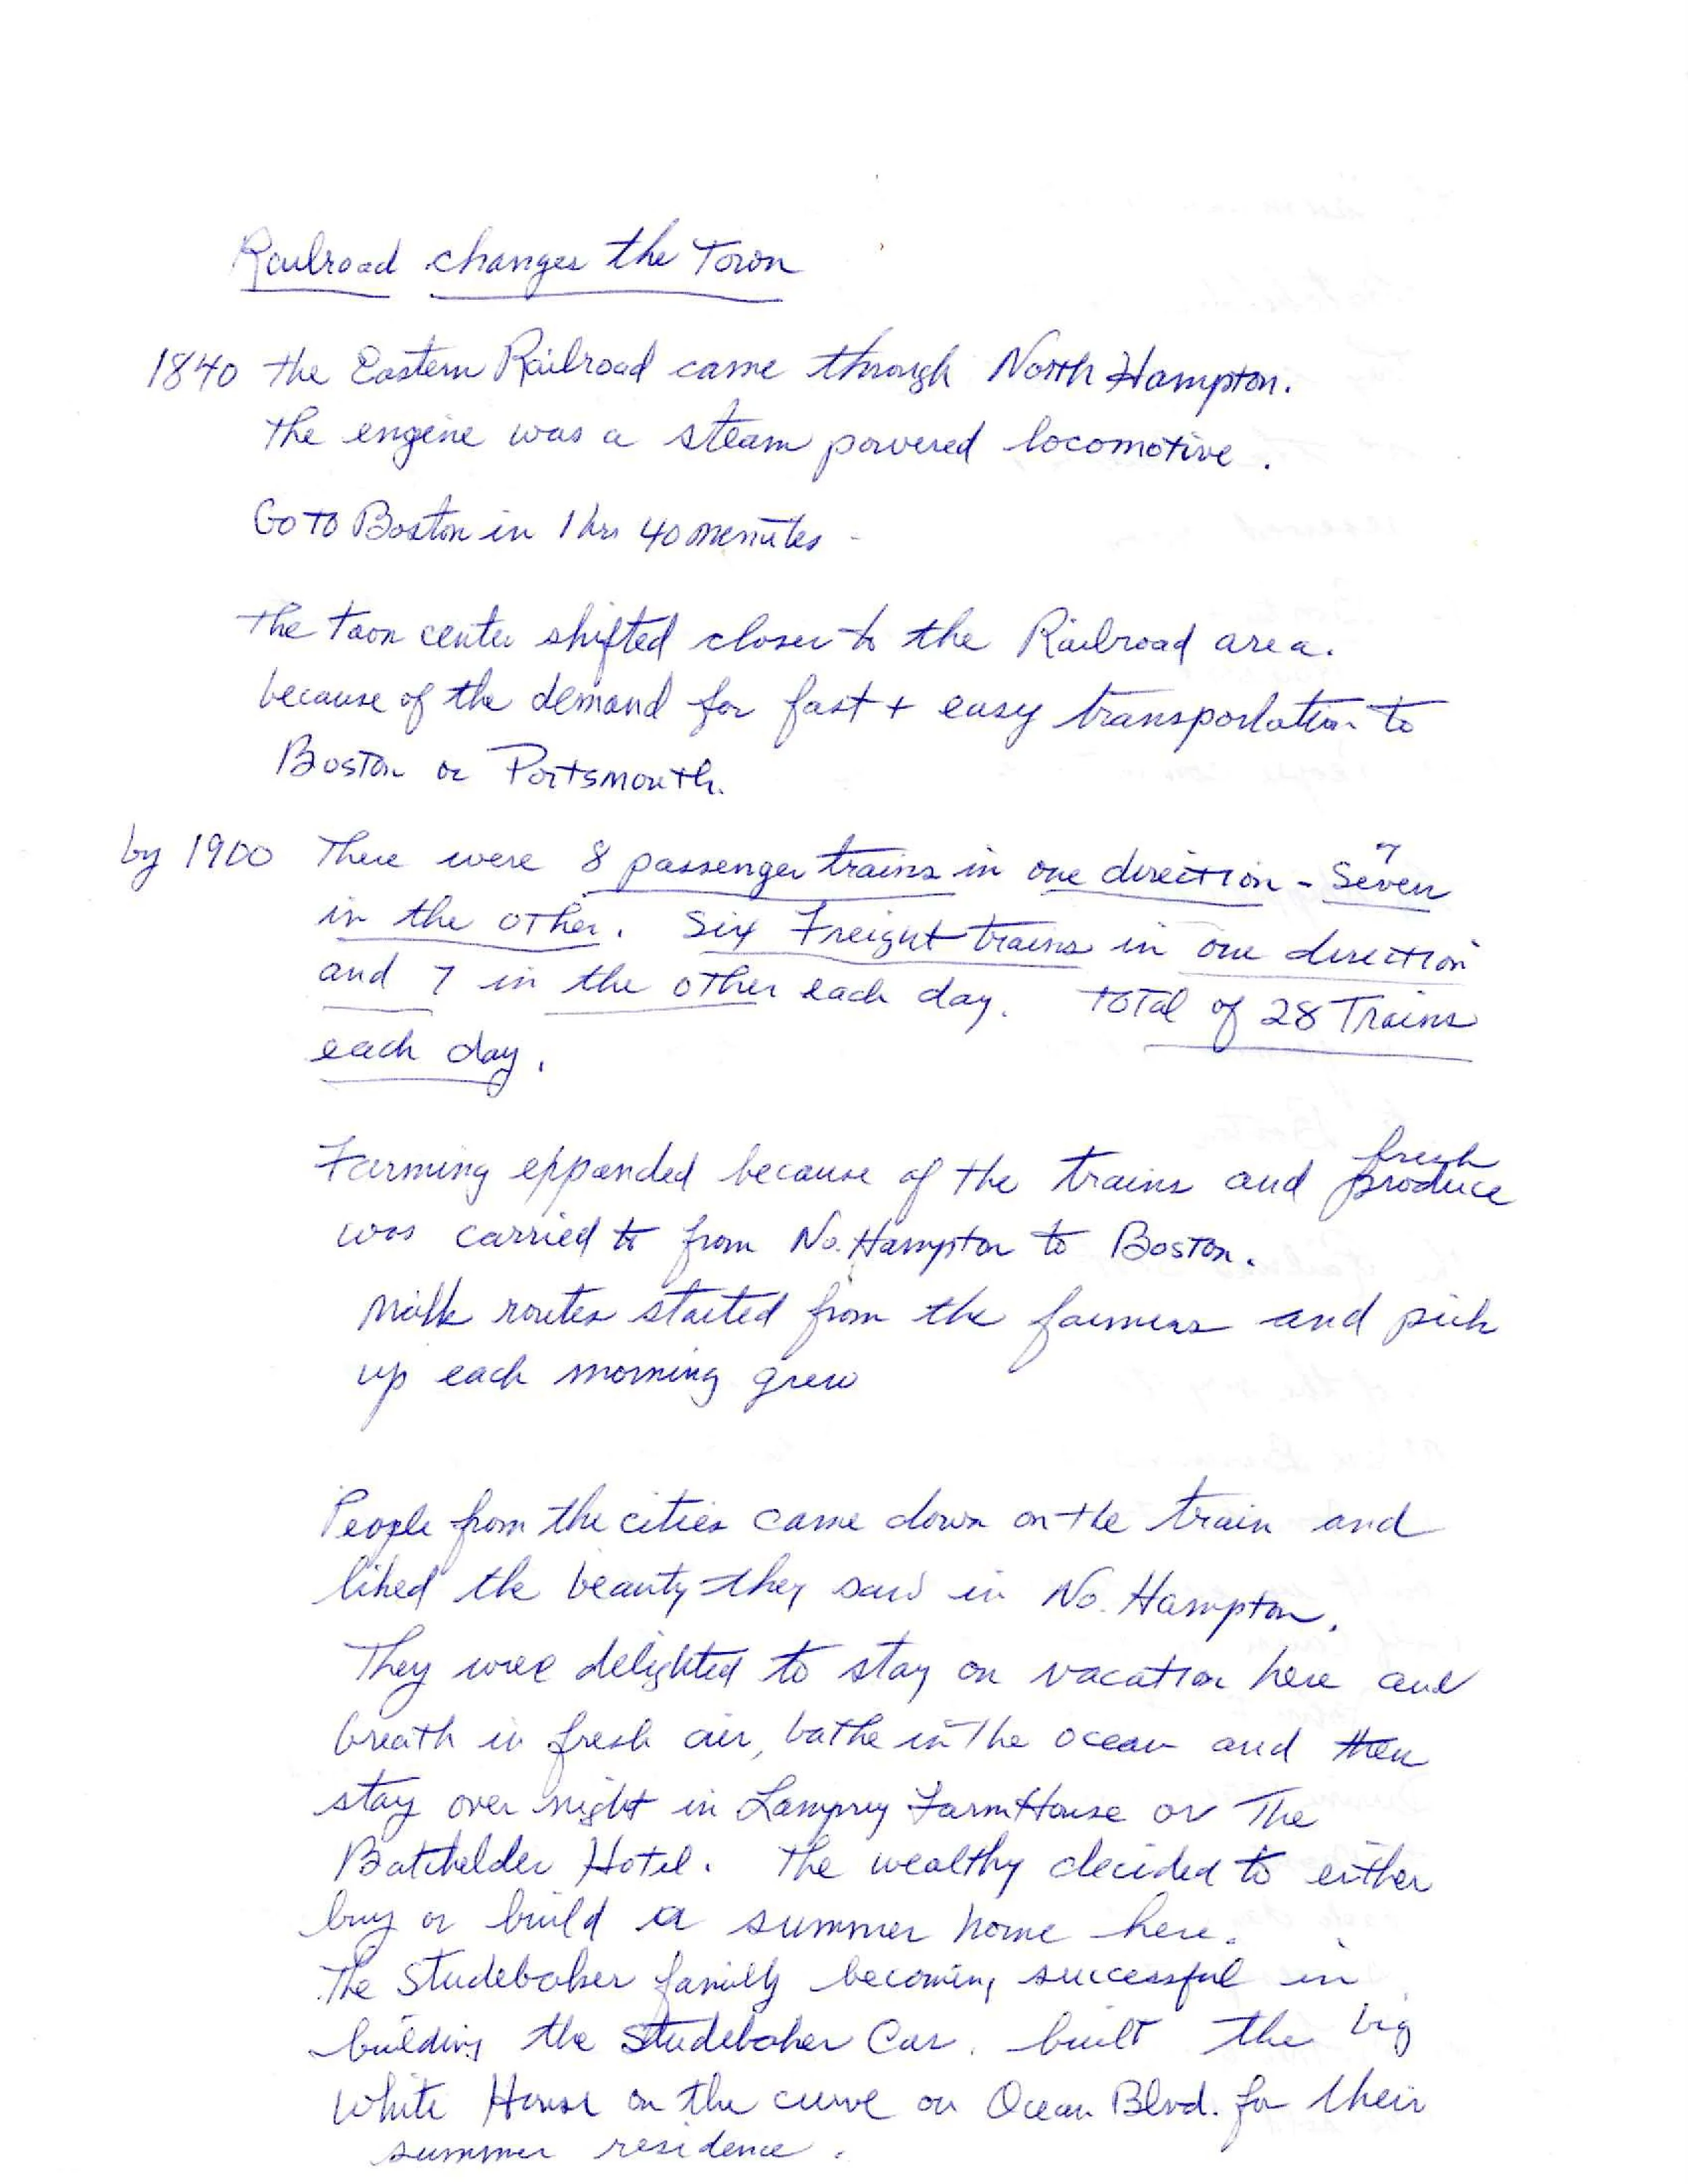 Railroad changes the Town
1840 the Eastern Railroad came through North Hampton.
the engine was a steam powered locomotive.
Go to Boston in 1 hrs 40 minutes -
The town center shifted closer to the Railroad area.
because of the demand for fast + easy transportation to
Boston or Portsmouth.
by 1900 There were 8 passenger trains in one direction - Seven
7
in the other. Six Freight trains in one direction
and 7 in the other each day. total of 28 Trains
each day.
Farming expanded because of the trains and fresh produce
was carried to from No. Hampton to Boston.
Milk routes started from the farmers and pick
up each morning grew
People from the cities came down on the train and
liked the beauty they saw in No. Hampton.
They were delighted to stay on vacation here and
breath in fresh air, bathe in the ocean and then
stay over night in Lamprey FarmHouse or The
Batchelder Hotel. The wealthy decided to either
buy or build a summer home here.
The Studebaker family becoming successful in
building the Studebaker Car. built the big
White House on the curve on Ocean Blvd. for their
summer residence.